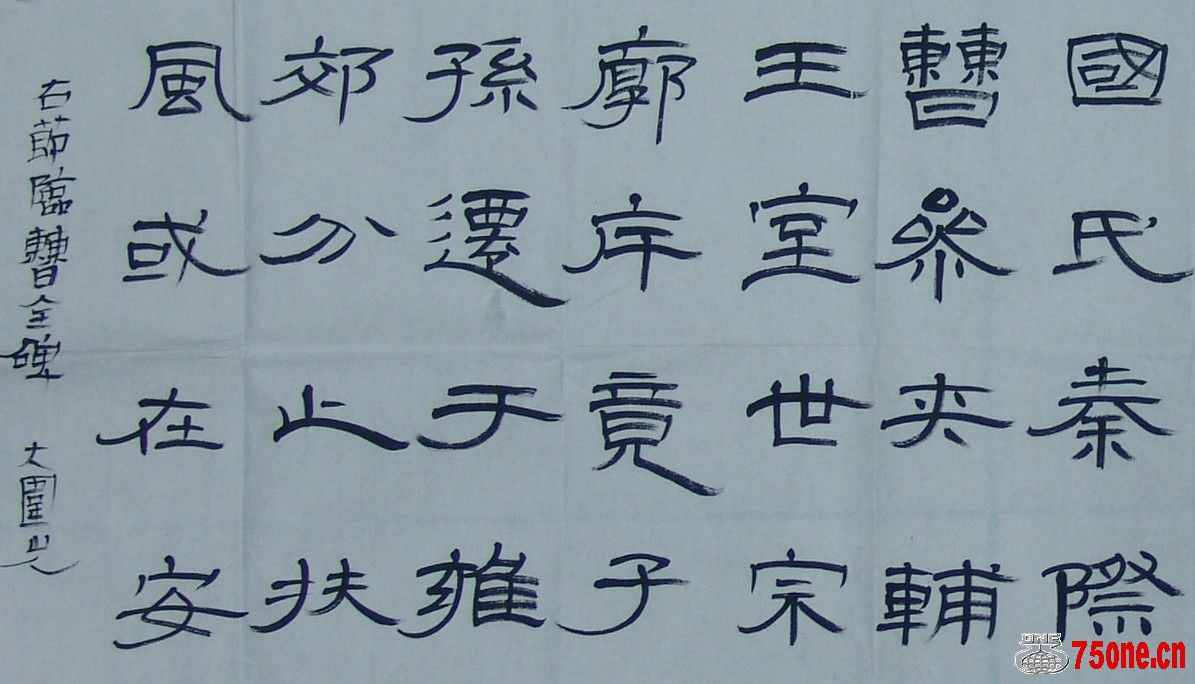 國氏秦際
曹參夾輔
王室世宗
廓斥竟子
孫遷于雍
郊分止扶
風或在安
右節臨曹全碑 大圍山人
ONE
75one.cn